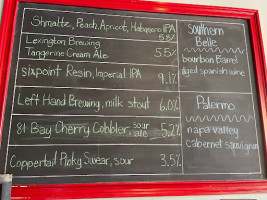 Shmaltz, Peach, Apricot, Habanero IPA
5.8%
Lexington Brewing
Tangerine Cream Ale 5.5%
sixpoint Resin, Imperial IPA 9.1%
Left Hand Brewing, milk stout 6.0%
81 Bay Cherry Cobbler, sour ale 5.2%
Coppertail Pinky Swear, sour 3.5%
Southern
Belle
bourbon Barrel
aged spanish wine
Palermo
napa valley
cabernet sauvignon